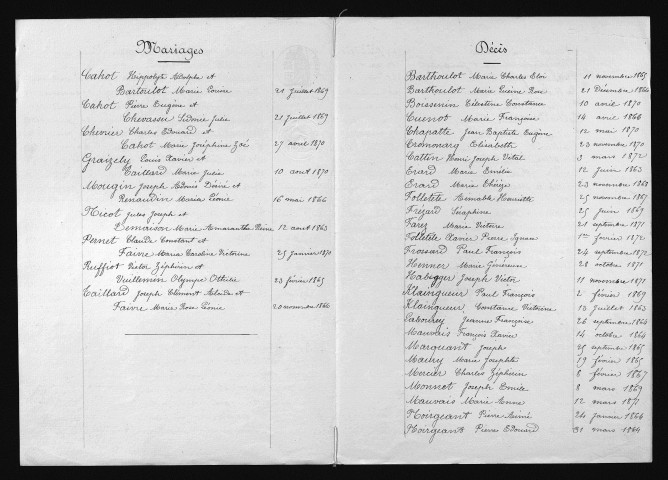 Mariages
Cahot Hippolyte Adolphe et
Bartoulot Marie Louise 20 Juillet 1869
Cahot Pierre Eugène et
Chevassu Sidonie Julie 21 Juillet 1869
Chevrier Charles Edouard et
Cahot Marie Joséphine Zoé 27 avril 1870
Graizely Louis Xavier et
Taillard Marie Julie 10 aout 1870
Mougin Joseph Edmé Désiré et
Renaudin Maria Léonie 16 mai 1866
Nicol Jules Joseph et
Demaison Marie Amaranthe Reine 12 aout 1863
Pernet Claude Constant et
Faivre Maria Caroline Victorine 25 Janvier 1870
Ruffiot Victor Zéphirin et
Vuillemin Olympe Ottilie 23 février 1865
Taillard Joseph Clément Aclade et
Faivre Marie Rose Léonie 20 novembre 1866
Décis
Barthoulot Marie Charles Eloi 11 novembre 1865
Barthoulot Marie Lucine Rose 21 Décembre 1864
Boissenin Célestine Constance 10 avril 1870
Cuenot Marie Françoise 14 avril 1866
Chapatte Jean Baptiste Eugène 12 mai 1870
Cromonary Elisabeth 23 novembre 1870
Cattin Henri Joseph Vital 3 mars 1872
Erard Marie Emélie 12 Juin 1863
Erard Marie Thérèze 23 novembre 1868
Folletête Aimable Henriette 25 novembre 1867
Frézard Séraphine 25 Juin 1869
Farez Marie Victoire 21 septembre 1871
Folletête Xavier Pierre Ignace 1er février 1872
Frossard Paul François 24 septembre 1872
Henner Marie Généreuse 28 octobre 1871
Habigger Joseph Victor 11 novembre 1871
Klaingueur Paul François 2 février 1869
Klaingueur Constance Victorine 13 Juillet 1863
Labourey Jeanne Françoise 26 septembre 1864
Mauvais François Xavier 14 octobre 1864
Marquant Joseph 25 septembre 1865
Maury Marie Josephte 19 février 1865
Mercier Charles Zéphirin 8 février 1867
Monnet Joseph Emile 8 mars 1869
Mauvais Marie Anne 12 mars 1871
Noirgeant Pierre Aimé 24 Janvier 1866
Noirgeant Pierre Edouard 31 mars 1864